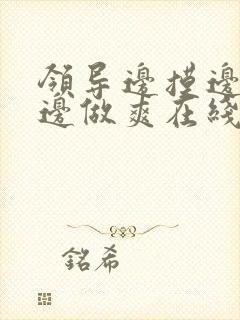 領导邊摸邊
邊做爽在綫
銘希